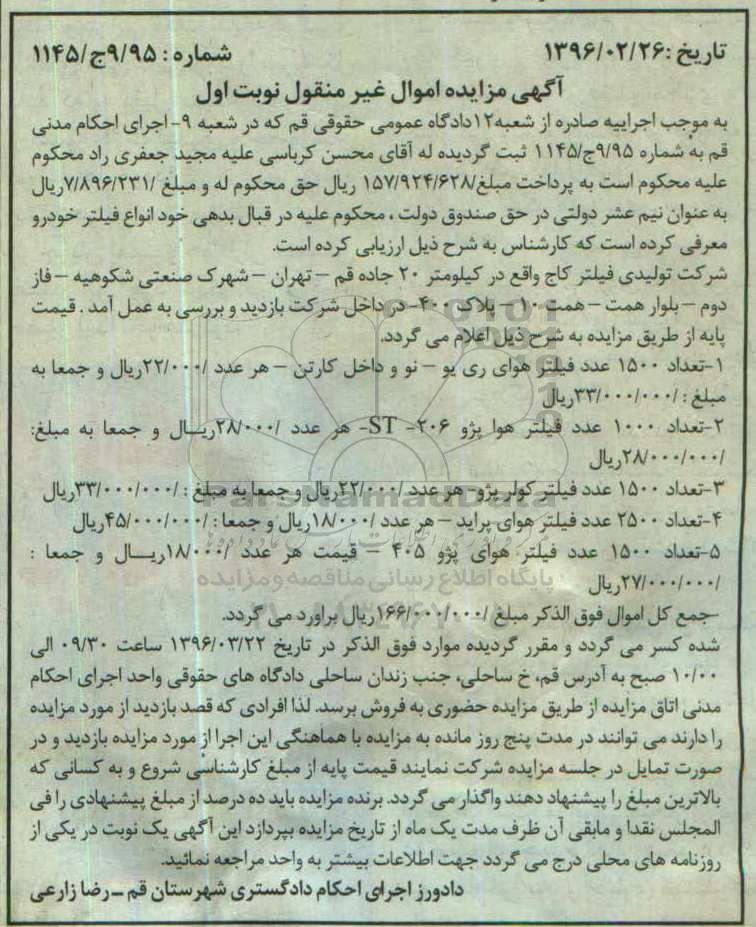 تاریخ :۱۳۹۶/۰۲/۲۶ شماره : ۹/۹۵ج/۱۱۴۵
آگهی مزایده اموال غیر منقول نوبت اول
به موجب اجراییه صادره از شعبه۱۲دادگاه عمومی حقوقی قم که در شعبه ۹- اجرای احکام مدنی
قم به شماره ۹/۹۵ج/۱۱۴۵ ثبت گردیده له آقای محسن کرباسی علیه مجید جعفری راد محکوم
علیه محکوم است به پرداخت مبلغ/۱۵۷/۹۲۴/۶۲۸ ریال حق محکوم له و مبلغ /۷/۸۹۶/۲۳۱ریال
به عنوان نیم عشر دولتی در حق صندوق دولت ، محکوم علیه در قبال بدهی خود انواع فیلتر خودرو
معرفی کرده است که کارشناس به شرح ذیل ارزیابی کرده است.
شرکت تولیدی فیلتر کاج واقع در کیلومتر ۲۰ جاده قم – تهران – شهرک صنعتی شکوهیه – فاز
دوم – بلوار همت – همت ۱۰ – پلاک ۴۰۰- در داخل شرکت بازدید و بررسی به عمل آمد . قیمت
پایه از طریق مزایده به شرح ذیل اعلام می گردد.
۱-تعداد ۱۵۰۰ عدد فیلتر هوای ری یو – نو و داخل کارتن – هر عدد /۲۲/۰۰۰ریال و جمعا به
مبلغ : /۳۳/۰۰۰/۰۰۰ریال
۲-تعداد ۱۰۰۰ عدد فیلتر هوا پژو ۲۰۶- ST- هر عدد /۲۸/۰۰۰ریـال و جمعا به مبلغ:
/۲۸/۰۰۰/۰۰۰ریال
۳-تعداد ۱۵۰۰ عدد فیلتر کولر پژو- هر عدد /۲۲/۰۰۰ریال و جمعا به مبلغ : /۳۳/۰۰۰/۰۰۰ریال
۴-تعداد ۲۵۰۰ عدد فیلتر هوای پراید – هر عدد /۱۸/۰۰۰ریال و جمعا : /۴۵/۰۰۰/۰۰۰ریال
۵-تعداد ۱۵۰۰ عدد فیلتر هوای پژو ۴۰۵ – قیمت هر عدد /۱۸/۰۰۰ریـــال و جمعا :
/۲۷/۰۰۰/۰۰۰ریال
-جمع کل اموال فوق الذکر مبلغ /۱۶۶/۰۰۰/۰۰۰ریال براورد می گردد.
شده کسر می گردد و مقرر گردیده موارد فوق الذکر در تاریخ ۱۳۹۶/۰۳/۲۲ ساعت ۰۹/۳۰ الی
۱۰/۰۰ صبح به آدرس قم، خ ساحلی، جنب زندان ساحلی دادگاه های حقوقی واحد اجرای احکام
مدنی اتاق مزایده از طریق مزایده حضوری به فروش برسد. لذا افرادی که قصد بازدید از مورد مزایده
را دارند می توانند در مدت پنج روز مانده به مزایده با هماهنگی این اجرا از مورد مزایده بازدید و در
صورت تمایل در جلسه مزایده شرکت نمایند قیمت پایه از مبلغ کارشناسی شروع و به کسانی که
بالاترین مبلغ را پیشنهاد دهند واگذار می گردد. برنده مزایده باید ده درصد از مبلغ پیشنهادی را فی
المجلس نقدا و مابقی آن ظرف مدت یک ماه از تاریخ مزایده بپردازد این آگهی یک نوبت در یکی از
روزنامه های محلی درج می گردد جهت اطلاعات بیشتر به واحد مراجعه نمائید.
دادورز اجرای احکام دادگستری شهرستان قم ــ رضا زارعی
ParsNamadData
پایگاه اطلاع رسانی مناقصه و مزایده